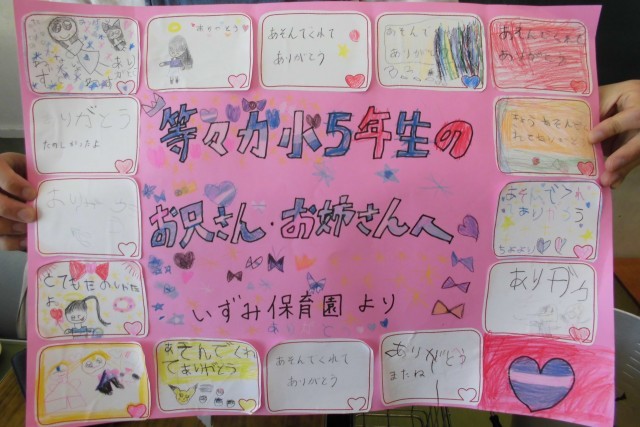 ありがとう
あそんでくれて
ありがとう
あそんで
ありがとう
あそんでくれて
ありがとう
りがとう
たのしかったよ
等々力小5年生の
お兄さん・お姉さんへ
いずみ保育園 より
あそんでくれて
ありがとう
とてもたのしかった
よ
ありがとう
あそんでくれ
てありがとう
あそんでくれて
ありがとう
ありがとう
またね